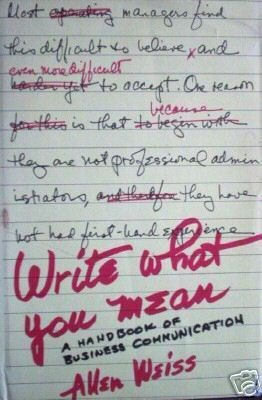 Most operating managers find
this difficult to believe, and
even more difficult
harder yet to accept. One reason
because
for this is that to begin with
they are not professional admin
istrators, and therefore they have
not had first-hand experience
Write what
you mean
A HANDBOOK OF
BUSINESS COMMUNICATION
Allen Weiss